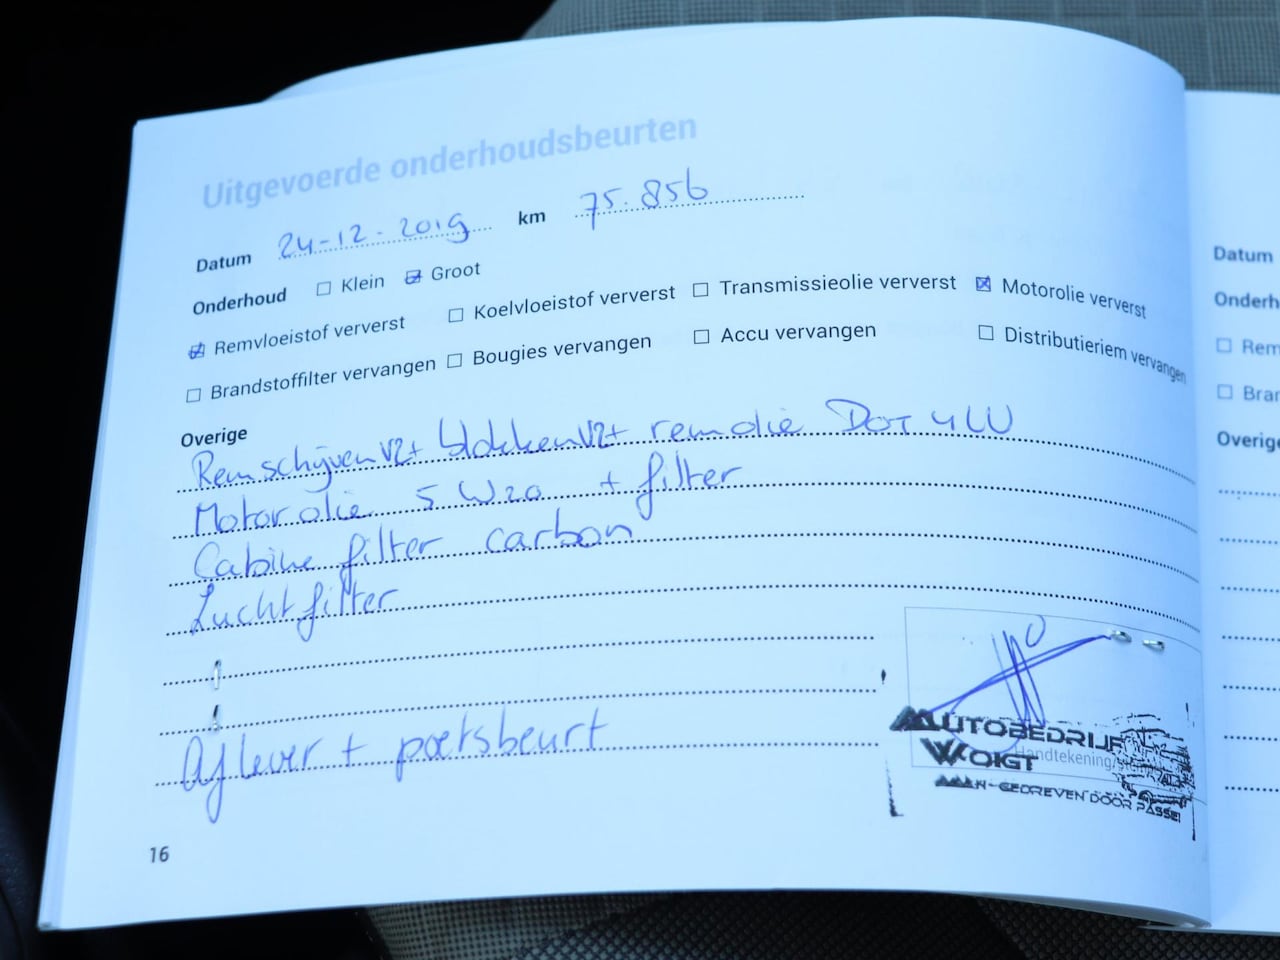 Uitgevoerde onderhoudsbeurten
Datum 24-12-2019 km 75.856
Onderhoud ☐ Klein ☑ Groot
☑ Remvloeistof ververst ☐ Koelvloeistof ververst ☐ Transmissieolie ververst ☒ Motorolie ververst
☐ Brandstoffilter vervangen ☐ Bougies vervangen ☐ Accu vervangen ☐ Distributieriem vervangen
Overige
Remschijven V2+ blokken V2+ remolie DOT 4 LV
Motorolie 5W20 + filter
Cabine filter carbon
Luchtfilter
Aflever + poetsbeurt
AUTOBEDRIJF
WOIGT
Handtekening/
GEDREVEN DOOR PASSIE
16
Datum
Onderh
☐ Rem
☐ Bran
Overige